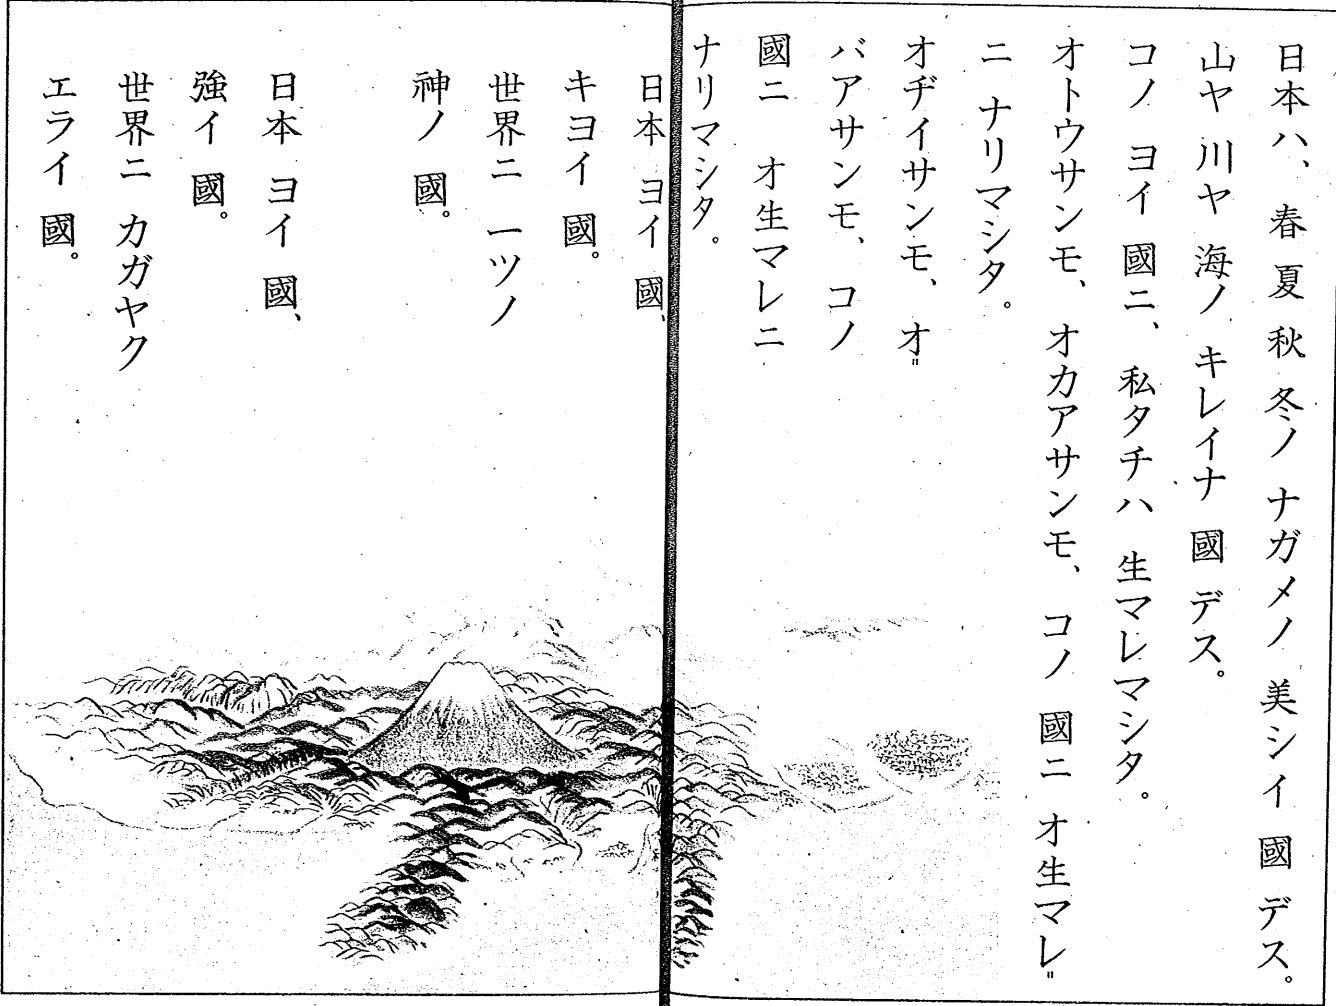 日本ハ、春 夏 秋 冬ノ ナガメノ 美シイ 國 デス。
山ヤ 川ヤ 海ノ キレイナ 國 デス。
コノ ヨイ 國ニ、私タチハ 生マレマシタ。
オトウサンモ、オカアサンモ、コノ 國ニ オ生マレ〃
ニ ナリマシタ。
オヂイサンモ、オ〃
バアサンモ、コノ
國ニ オ生マレニ
ナリマシタ。
日本 ヨイ 國、
キヨイ 國。
世界ニ 一ツノ
神ノ 國。
日本 ヨイ 國、
強イ 國。
世界ニ カガヤク
エライ 國。